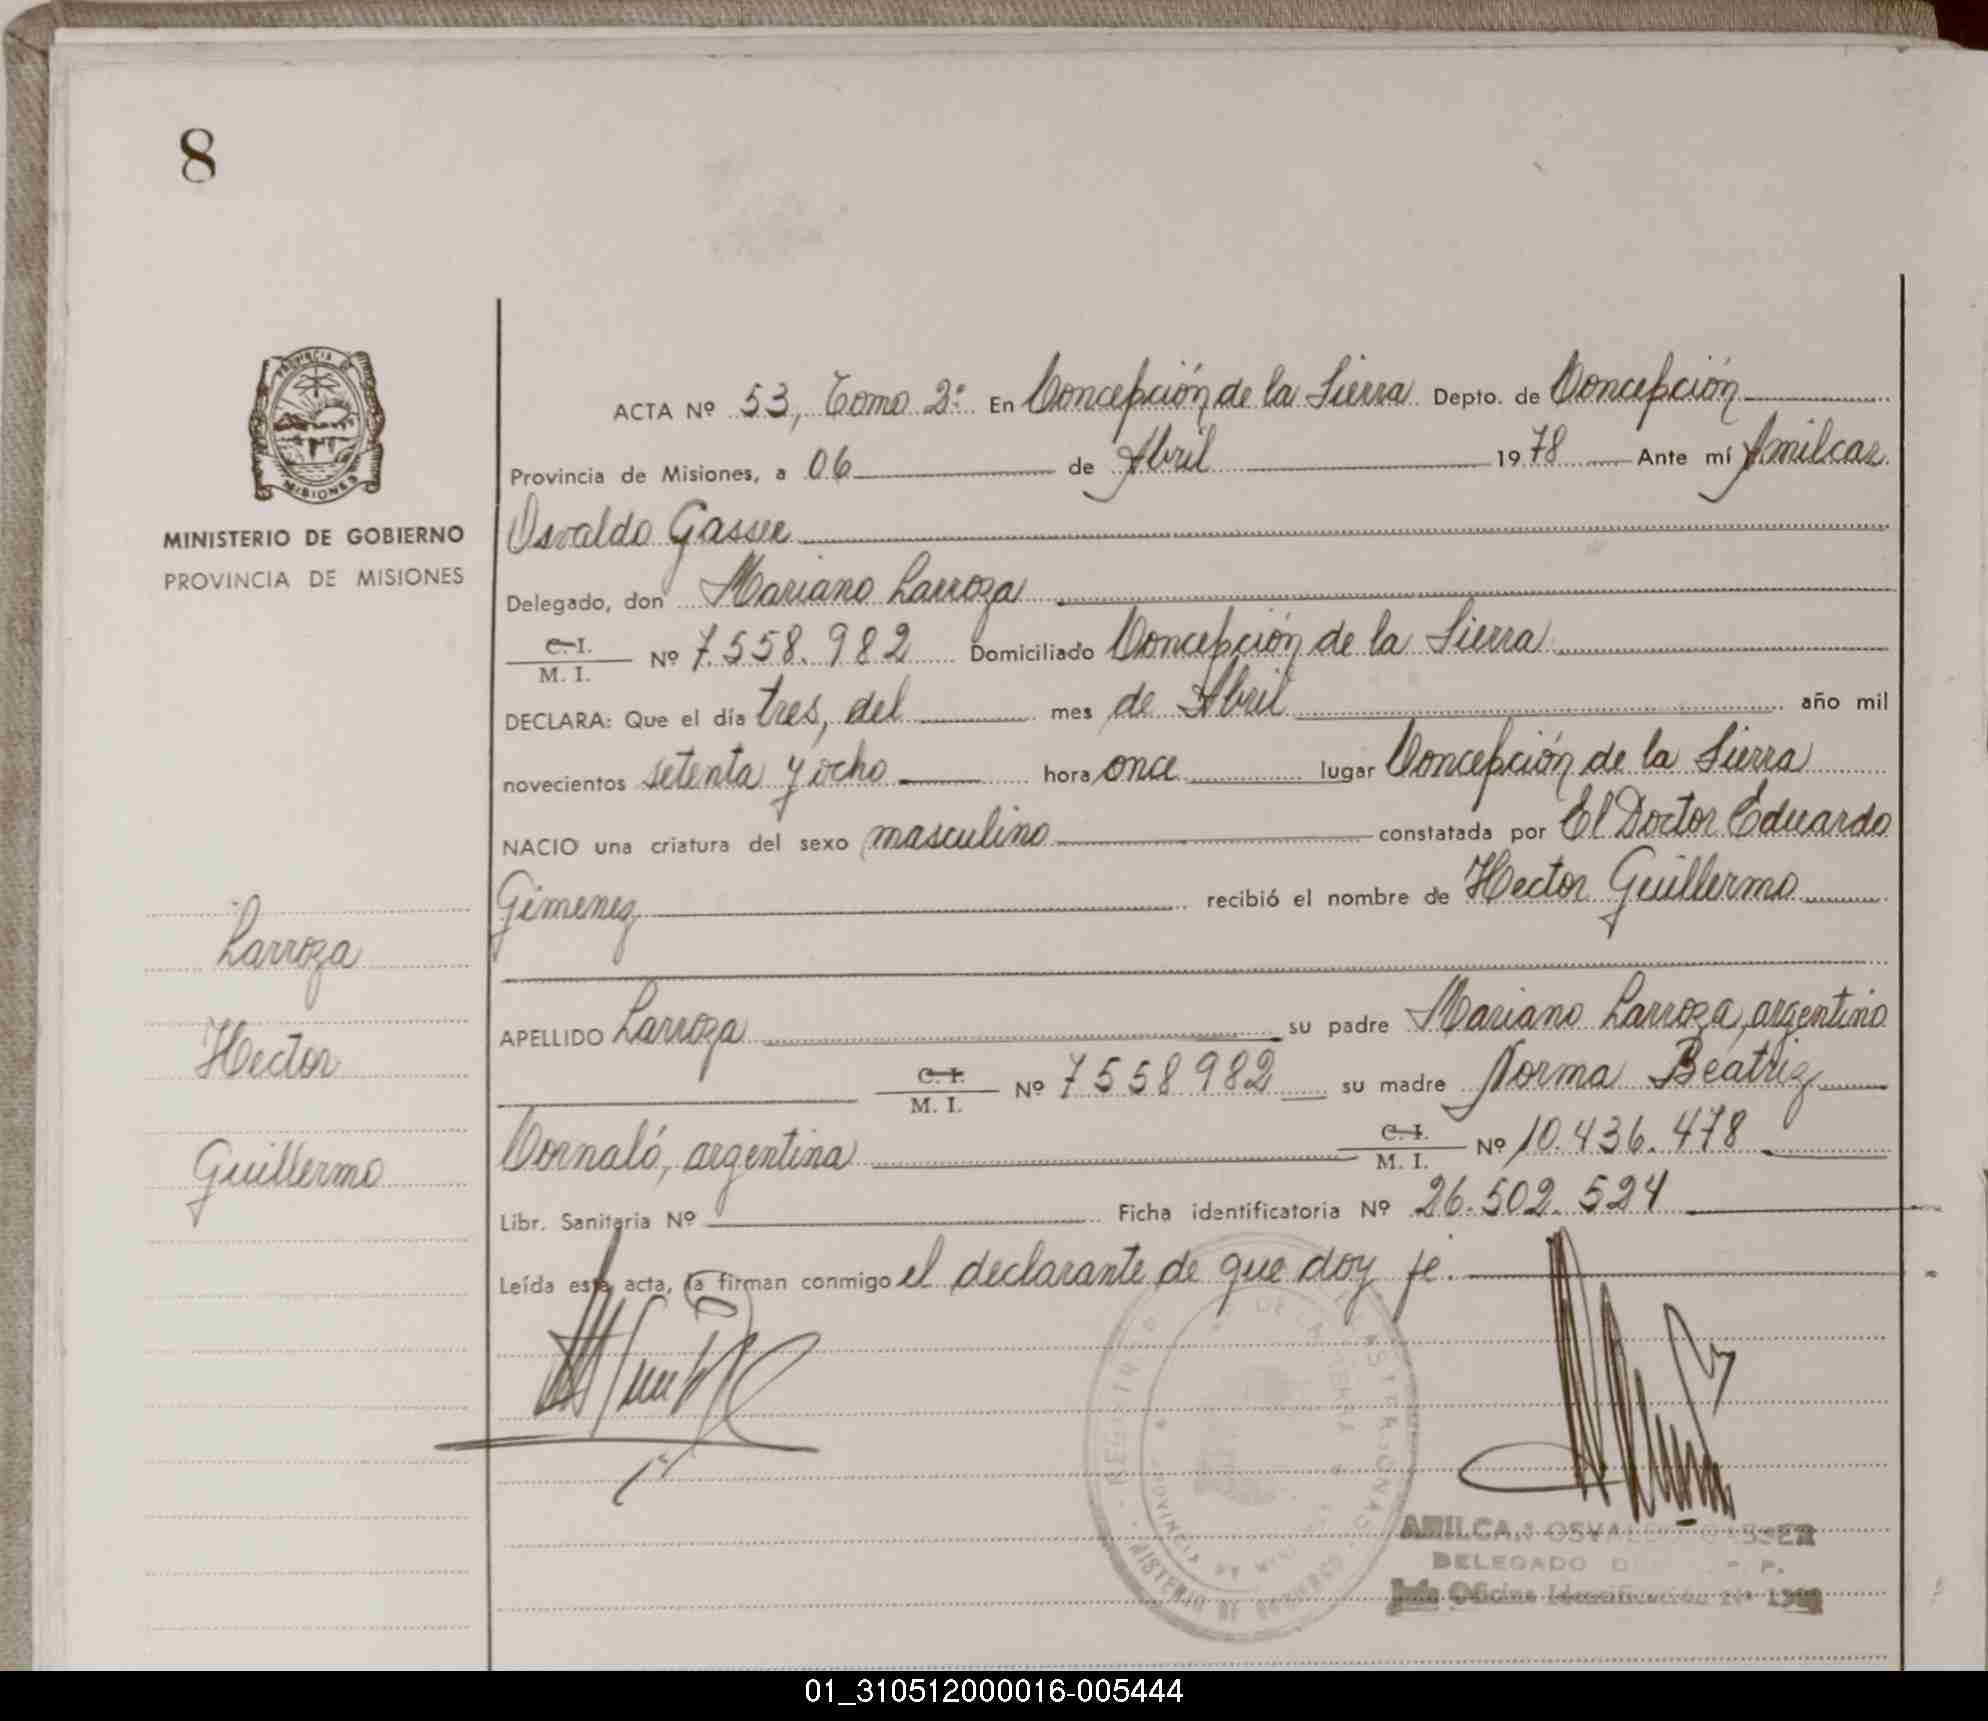 8
PROVINCIA DE
MISIONES
MINISTERIO DE GOBIERNO
PROVINCIA DE MISIONES
Larroza
Hector
Guillermo
ACTA Nº 53, Tomo 2º En Concepción de la Sierra Depto. de Concepción
Provincia de Misiones, a 06 de Abril 1978 Ante mí Amilcar
Osvaldo Gasser
Delegado, don Mariano Larroza
C.I.
M. I. Nº 7.558.982 Domiciliado Concepción de la Sierra
DECLARA: Que el día tres, del mes de Abril año mil
novecientos setenta y ocho hora once lugar Concepción de la Sierra
NACIO una criatura del sexo masculino constatada por El Doctor Eduardo
Gimenez recibió el nombre de Hector Guillermo
APELLIDO Larroza su padre Mariano Larroza, argentino
C. I.
M. I. Nº 7558982 su madre Norma Beatriz
Cornaló, argentina C. I.
M. I. Nº 10.436.478
Libr. Sanitaria Nº Ficha identificatoria Nº 26.502.524
Leída esta acta, la firman conmigo el declarante de que doy fé.
AMILCAR OSVALDO GASSER
DELEGADO
Jefe Oficina Identificación Nº
01_310512000016-005444